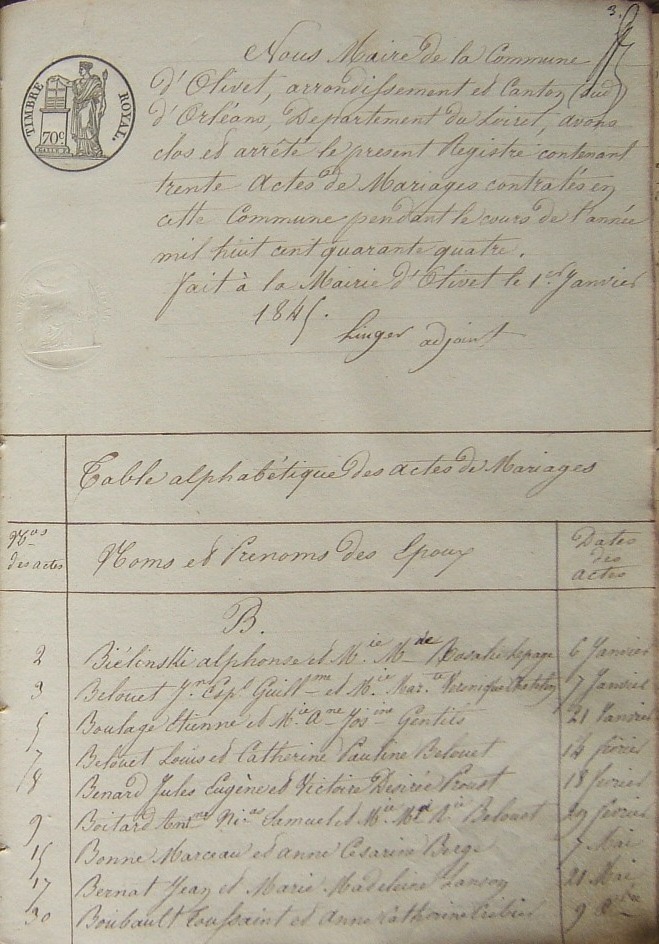 3.
TIMBRE ROYAL.
70c
Nous Maire de la Commune
d'Olivet, arrondissement et Canton sud
d'Orléans, Département du Loiret, avons
clos et arrêté le present Registre contenant
trente Actes de Mariages contratés en
cette Commune pendant le cours de l'année
mil huit cent quarante quatre.
fait à la Mairie d'Olivet le 1er Janvier
1845.
Linger adjoint
Table alphabétique des actes de Mariages
Nos des actes
Noms et Prenoms des Epoux
Dates des actes
B.
2 Biélinski alphonse et Mie Mde Rosalie Lepage 6 Janvier
3 Belouet Jn Guillme et Mie Véronique 7 Janvier
5 Boulage Etienne et Mie Ane Josine Gentils 21 Janvier
7 Belouet Louis et Catherine Pauline Belouet 14 février
8 Benard Jules Eugène et Victoire Desirée Proust 18 fevrier
9 Boitard Antne Nias Samuel et Mie Belouet 29 février
15 Bonne Marceau et anne Césarine Berge 7 Mai
17 Bernat Jean et Marie Madeleine Lanson 21 Mai
30 Boubault Toussaint et Anne Catherine 9